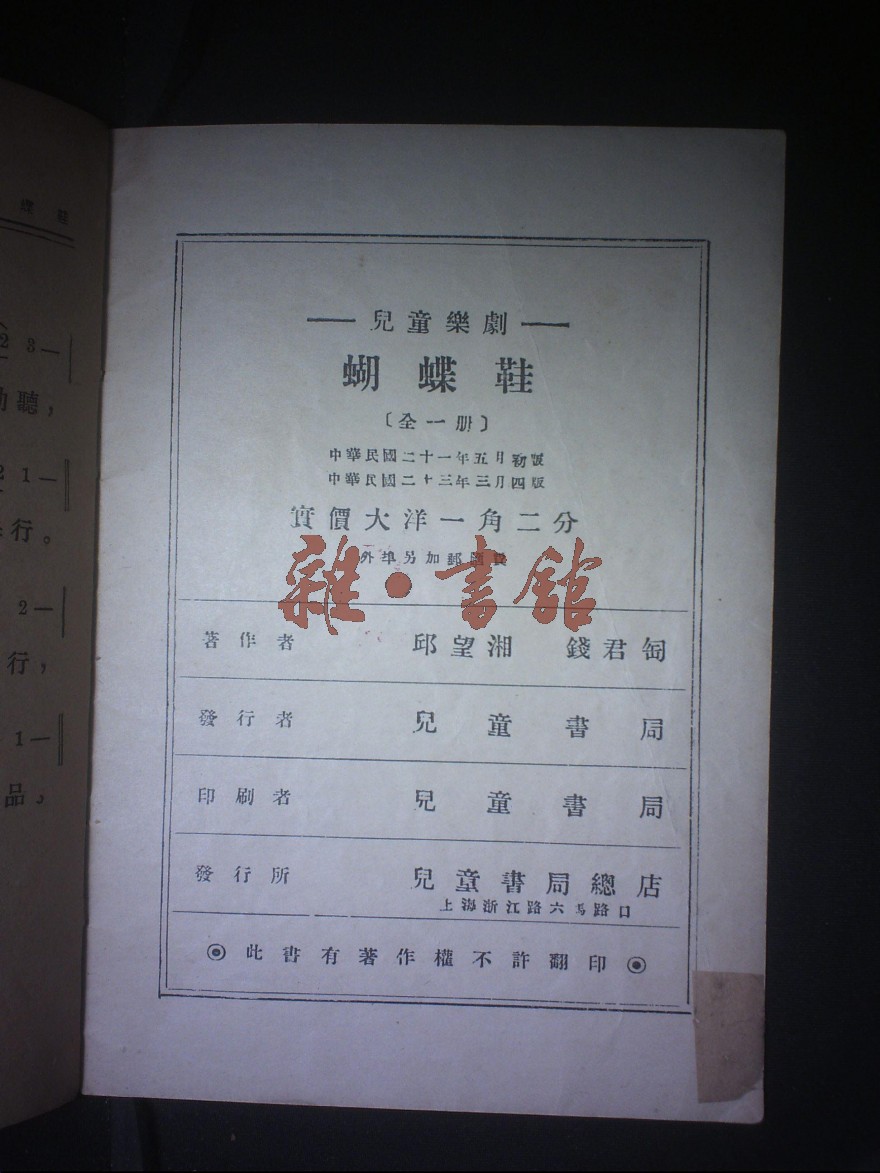 蝶 鞋
2 3 —
聽，
2 1 —
行。
2 —
行，
1 —
品，
— 兒童樂劇 —
蝴蝶鞋
〔全一册〕
中華民國二十一年五月初版
中華民國二十三年三月四版
實價大洋一角二分
外埠另加郵
雜·書館
著作者 邱望湘 錢君匋
發行者 兒童書局
印刷者 兒童書局
發行所 兒童書局總店
上海浙江路六馬路口
此書有著作權不許翻印